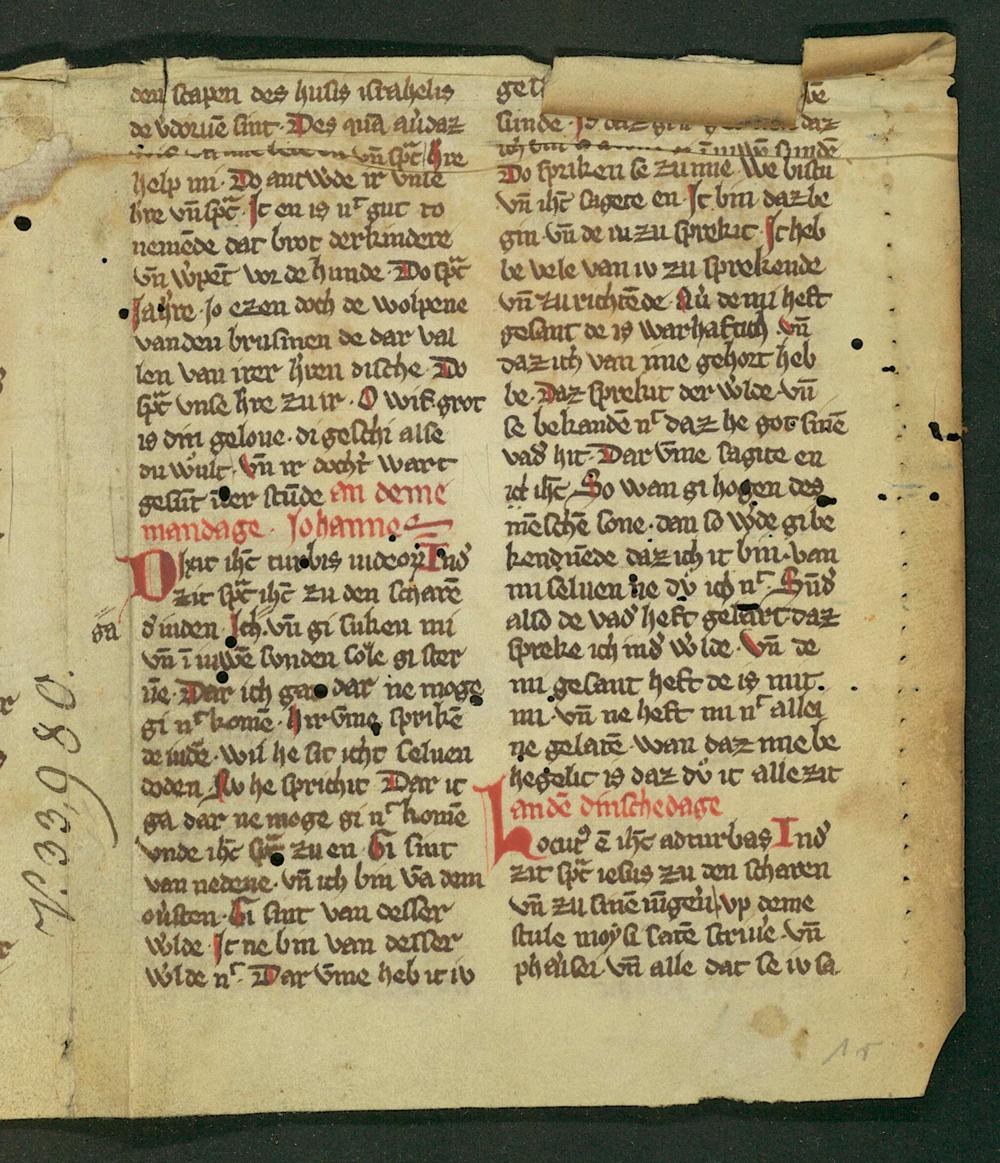 den scapen des husis israhelis
de vdoruē sint · Des quā au daz
vn̄ spc̄ · hre
help mi · Do antw̄de ir vnse
hre vn̄ spc̄ · It en is nͭ gut to
nemēde dat brot der kindere
vn̄ w̓pēt vor de hunde · Do spc̄
Ja hre · Jo ezen doch de wolpene
van den brusmen de dar val
len van irer h̓ren dische · Do
spc̄ vnse hre zu ir · O wif · grot
is din geloue · di geschi alse
du w̓ult · Vn̄ ir docht̓ wart
gesūt v̄er stūde an deme
mandage · Johannes
Dixit ihc̄ turbis iudeoꝝ Ind̓
zit spc̄ ihc̄ zu den scharē
d̓ iuden · Ich vn̄ gi suken mi
vn̄ ī iuwē sunden sole gi ster
ūe · Dar ich ga dar ne moge
gi nͭ komē · Hir v̄me sprikē
de iudē · wil he sic icht seluen
doden · Nv he sprichit · Dar ic
ga dar ne moge gi nͭ komē
vnde ihc̄ spc̄ zu en · Gi sint
van nedene · vn̄ ich bin vā dem
ou̓sten · Gi sint van desser
w̓lde · Ic ne bin van desser
w̓lde nͭ · Dar v̄me heb ic iv
ga
V. 33,980.
ges
sunde · daz
ī iuwē sundē
Do spriken se zu me · We bistu
vn̄ ihc̄ sagete en · Ic bin daz be
gin · vn̄ de iu zu sprekit · Ic heb
be vele van iv zu sprekende
vn̄ zu richtēde · Nu de mi heft
gesant de is warhaftich · vn̄
daz ich van me gehort heb
be · Daz sprekit der w̓lde · vn̄
se bekandē nͭ daz he got sinē
vad̓ hit · Dar v̄me sagite en
ihc̄ · So wan gi hogen des
mēschē sone · dan so w̓de gi be
kennēde daz ich it bin · van
mi seluen ne du̓ ich nͭ · Sūd̓
also de vad̓ heft gelart daz
spreke ich in d̓ w̓lde · Vn̄ de
mi gesant heft de is mit
mi · vn̄ ne heft mi nͭ allei
ne gelatē wan daz me be
hegelic is daz du̓ ic allezit
an dē dinschedage
Locutꝰ ē ihc̄ ad turbas Ind̓
zit spc̄ iesus zu den scharen
vn̄ zu sinē iūgerē vp deme
stule moysi satē scriue · vn̄
pharisei · vn̄ alle dat se iv sa
15